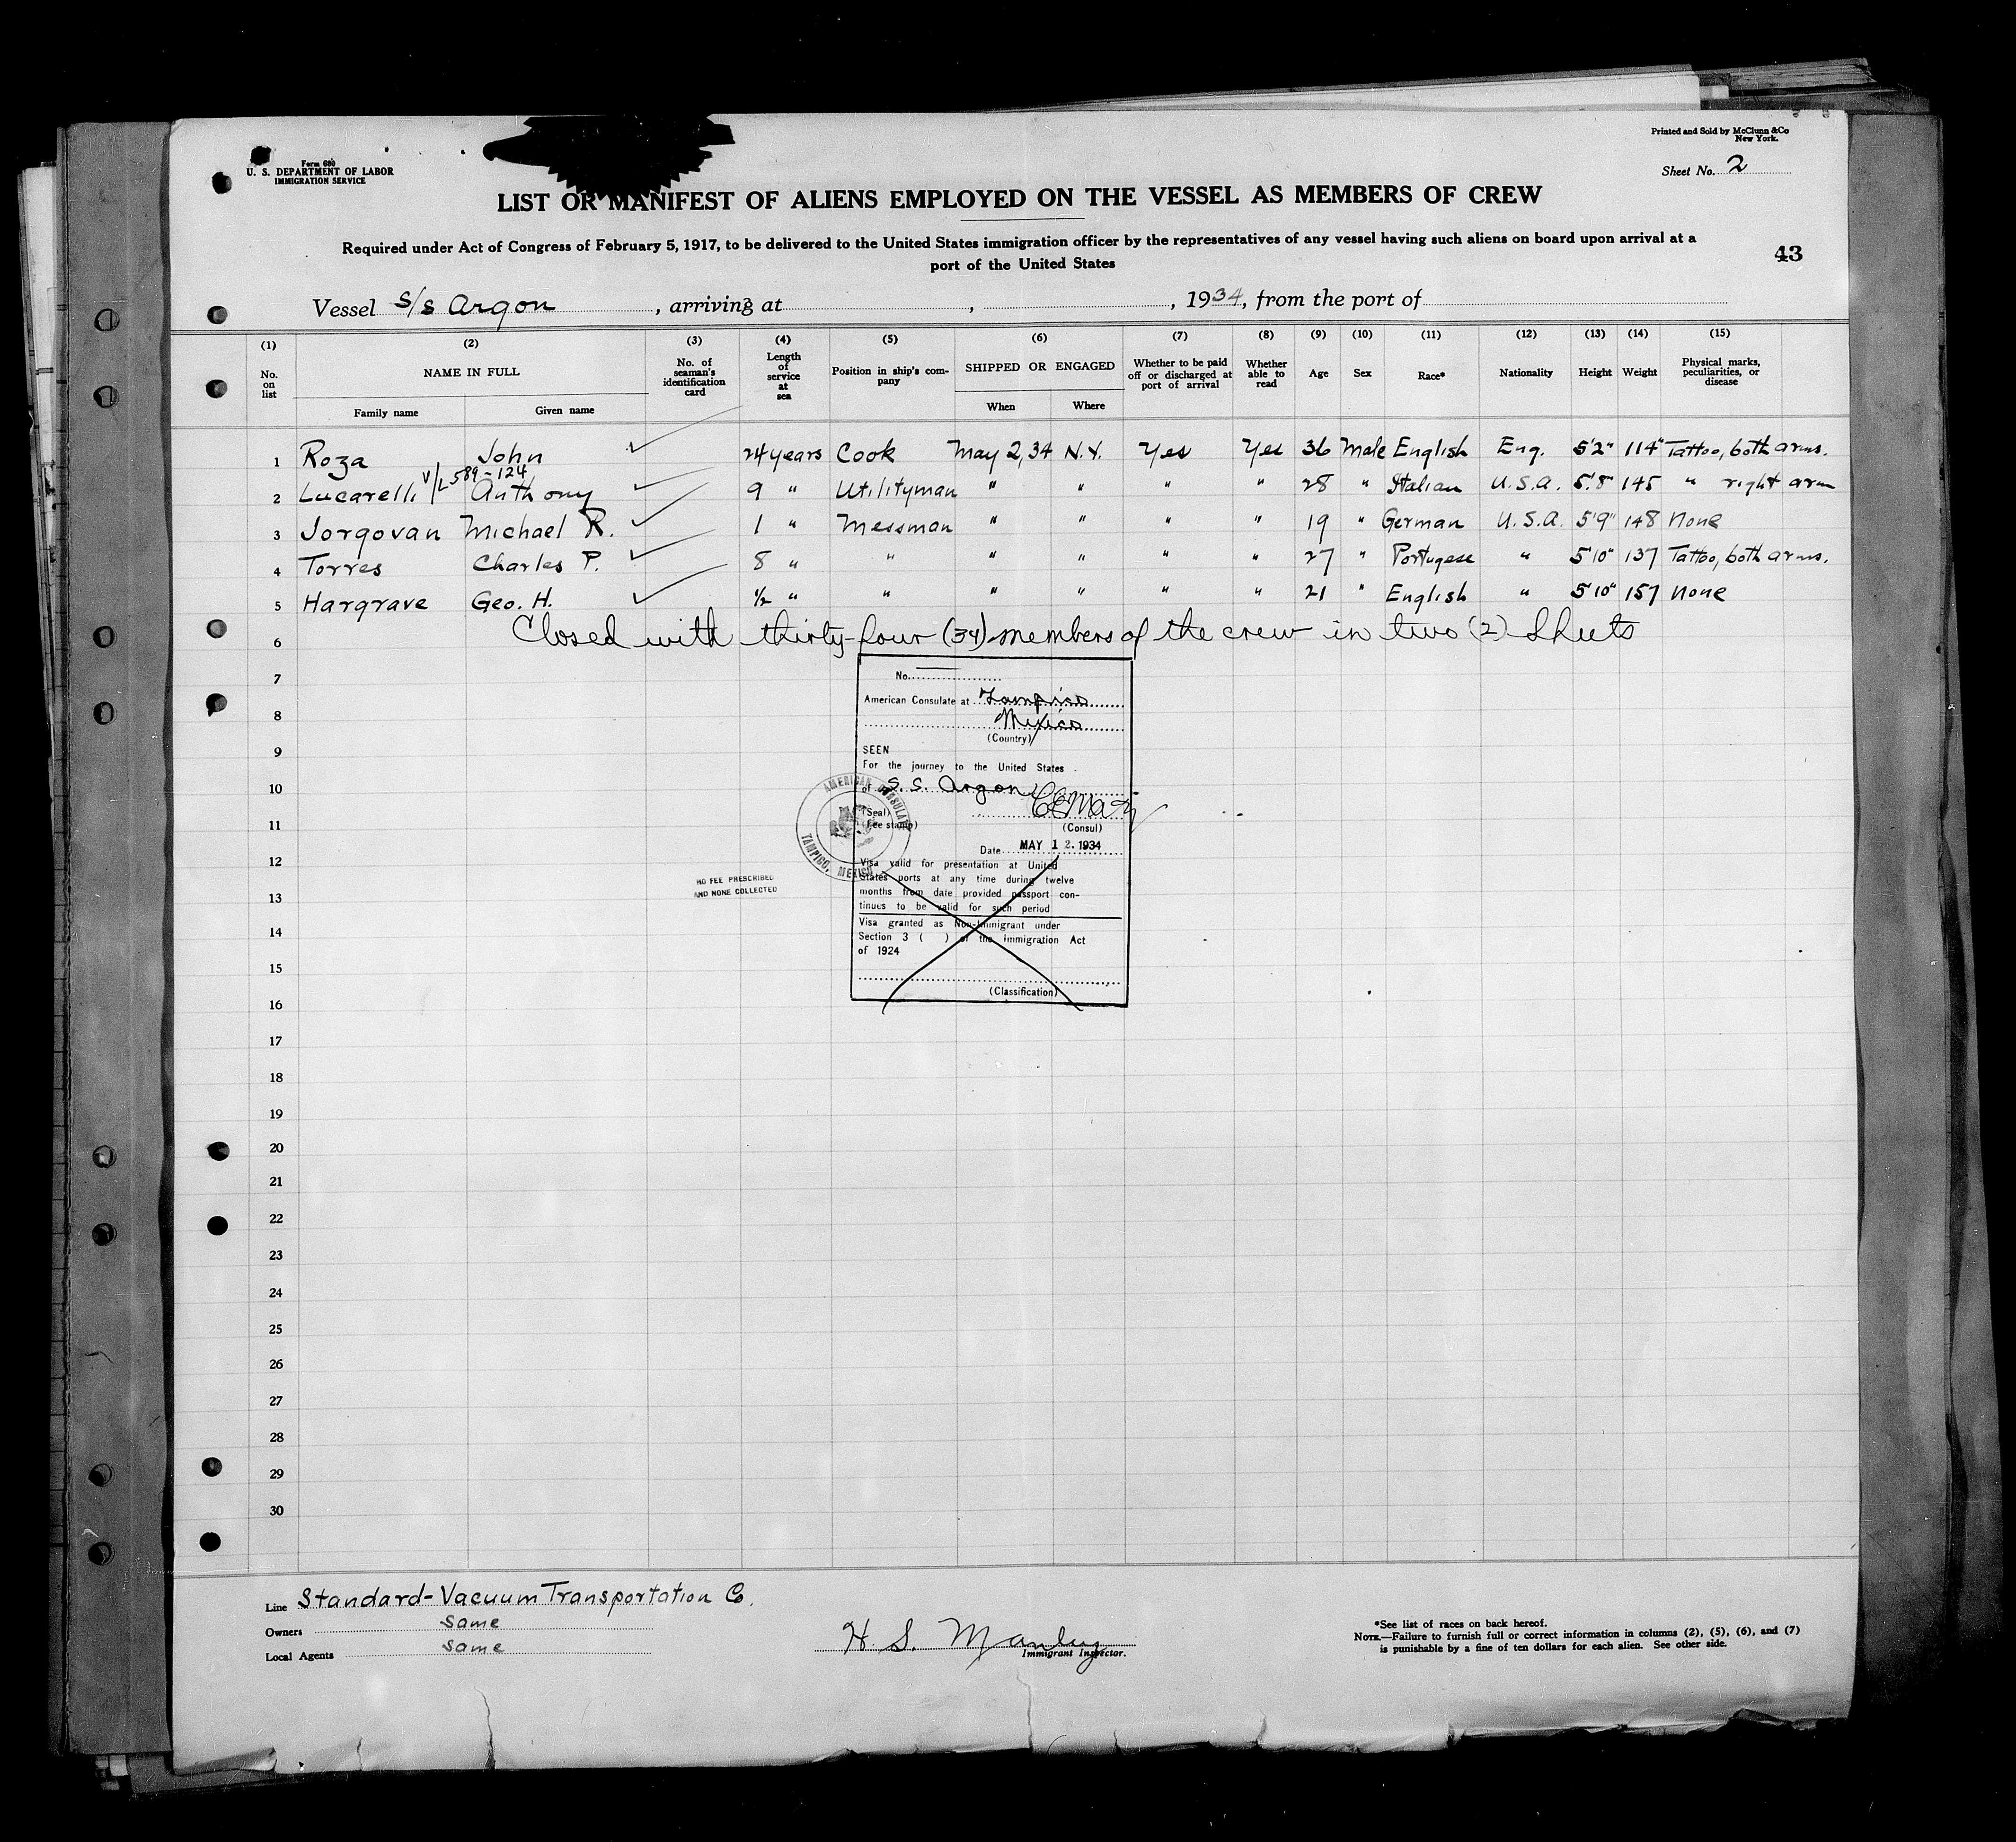 Form 680
U. S. DEPARTMENT OF LABOR
IMMIGRATION SERVICE
Printed and Sold by McClunn & Co
New York.
Sheet No. 2
LIST OR MANIFEST OF ALIENS EMPLOYED ON THE VESSEL AS MEMBERS OF CREW
Required under Act of Congress of February 5, 1917, to be delivered to the United States immigration officer by the representatives of any vessel having such aliens on board upon arrival at a
port of the United States
43
Vessel S/S Argon, arriving at , , 1934, from the port of
(1) (2) (3) (4) (5) (6) (7) (8) (9) (10) (11) (12) (13) (14) (15)
No. on list NAME IN FULL No. of seaman's identification card Length of service at sea Position in ship's company SHIPPED OR ENGAGED Whether to be paid off or discharged at port of arrival Whether able to read Age Sex Race* Nationality Height Weight Physical marks, peculiarities, or disease
Family name Given name When Where
1 Roza John ✓ 24 years Cook May 2, 34 N.Y. Yes Yes 36 Male English Eng. 5'2" 114" Tattoo, both arms.
V/L 589-124
2 Lucarelli Anthony ✓ 9 " Utilityman " " " " 28 " Italian U.S.A. 5'8" 145 " right arm
3 Jorgovan Michael R. ✓ 1 " Messman " " " " 19 " German U.S.A. 5'9" 148 None
4 Torres Charles P. ✓ 8 " " " " " " 27 " Portugese " 5'10" 137 Tattoo, both arms.
5 Hargrave Geo. H. ✓ ½ " " " " " " 21 " English " 5'10" 157 None
6 Closed with thirty-four (34) members of the crew in two (2) sheets
7
8
9
10
11
12
13
14
15
16
17
18
19
20
21
22
23
24
25
26
27
28
29
30
No.
American Consulate at Tampico
Mexico
(Country)
SEEN
For the journey to the United States
of S. S. Argon
(Seal)
(Fee stamp)
(Consul)
Date MAY 12 1934
Visa valid for presentation at United
States ports at any time during twelve
months from date provided passport con-
tinues to be valid for such period
Visa granted as Non-Immigrant under
Section 3 ( ) of the Immigration Act
of 1924
(Classification)
AMERICAN CONSULATE
TAMPICO, MEXICO
NO FEE PRESCRIBED
AND NONE COLLECTED
Line Standard-Vacuum Transportation Co.
Owners same
Local Agents same
H S. Manley
Immigrant Inspector.
*See list of races on back hereof.
NOTE.—Failure to furnish full or correct information in columns (2), (5), (6), and (7)
is punishable by a fine of ten dollars for each alien. See other side.